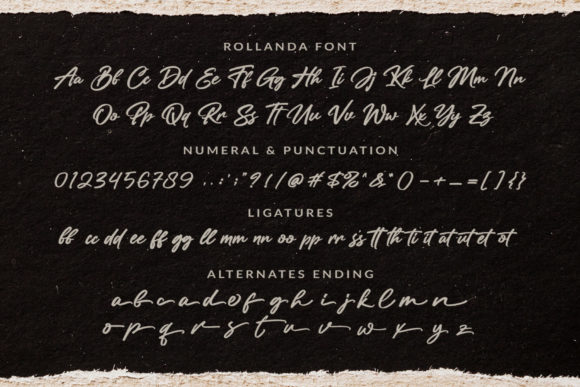 ROLLANDA FONT
Aa Bb Cc Dd Ee Ff Gg Hh Ii Jj Kk Ll Mm Nn
Oo Pp Qq Rr Ss Tt Uu Vv Ww Xx Yy Zz
NUMERAL & PUNCTUATION
0123456789 .,:;'"?!/@#$%^&*()-+_=[]{}
LIGATURES
bb cc dd ee ff gg ll mm nn oo pp rr ss tt th ti it at ut et ot
ALTERNATES ENDING
a b c d e f g h i j k l m n
o p q r s t u v w x y z